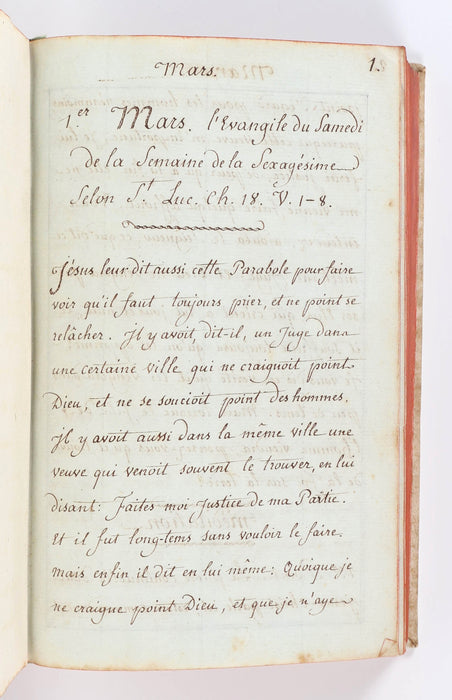 Mars.
1.
1.er Mars. l'Evangile du Samedi
de la Semaine de la Sexagésime
Selon St. Luc. Ch. 18. V. 1-8.
Jésus leur dit aussi cette Parabole pour faire
voir qu'il faut toujours prier, et ne point se
relâcher. Il y avoit, dit-il, un Juge dans
une certaine ville qui ne craignoit point
Dieu, et ne se soucioit point des hommes.
Il y avoit aussi dans la même ville une
veuve qui venoit souvent le trouver, en lui
disant: Faites moi Justice de ma Partie.
Et il fut long-tems sans vouloir le faire.
Mais enfin il dit en lui même: Quoique je
ne craigne point Dieu, et que je n'aye